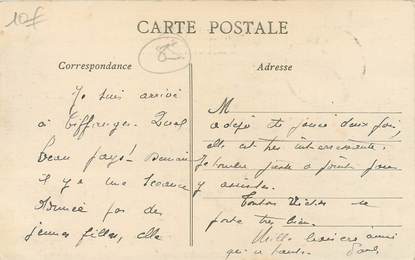 10f
CARTE POSTALE
8
Correspondance
Je suis arrivé
à Tiffauges. Quel
beau pays! Demain
il y a une séance
donnée par des
jeunes filles, elle
Adresse
M
a déjà été jouée deux fois,
elle est très intéressante.
Je tombe juste à point pour
y assister.
Tonton Victor se
porte très bien.
Mille baisers ainsi
qu'à tous.